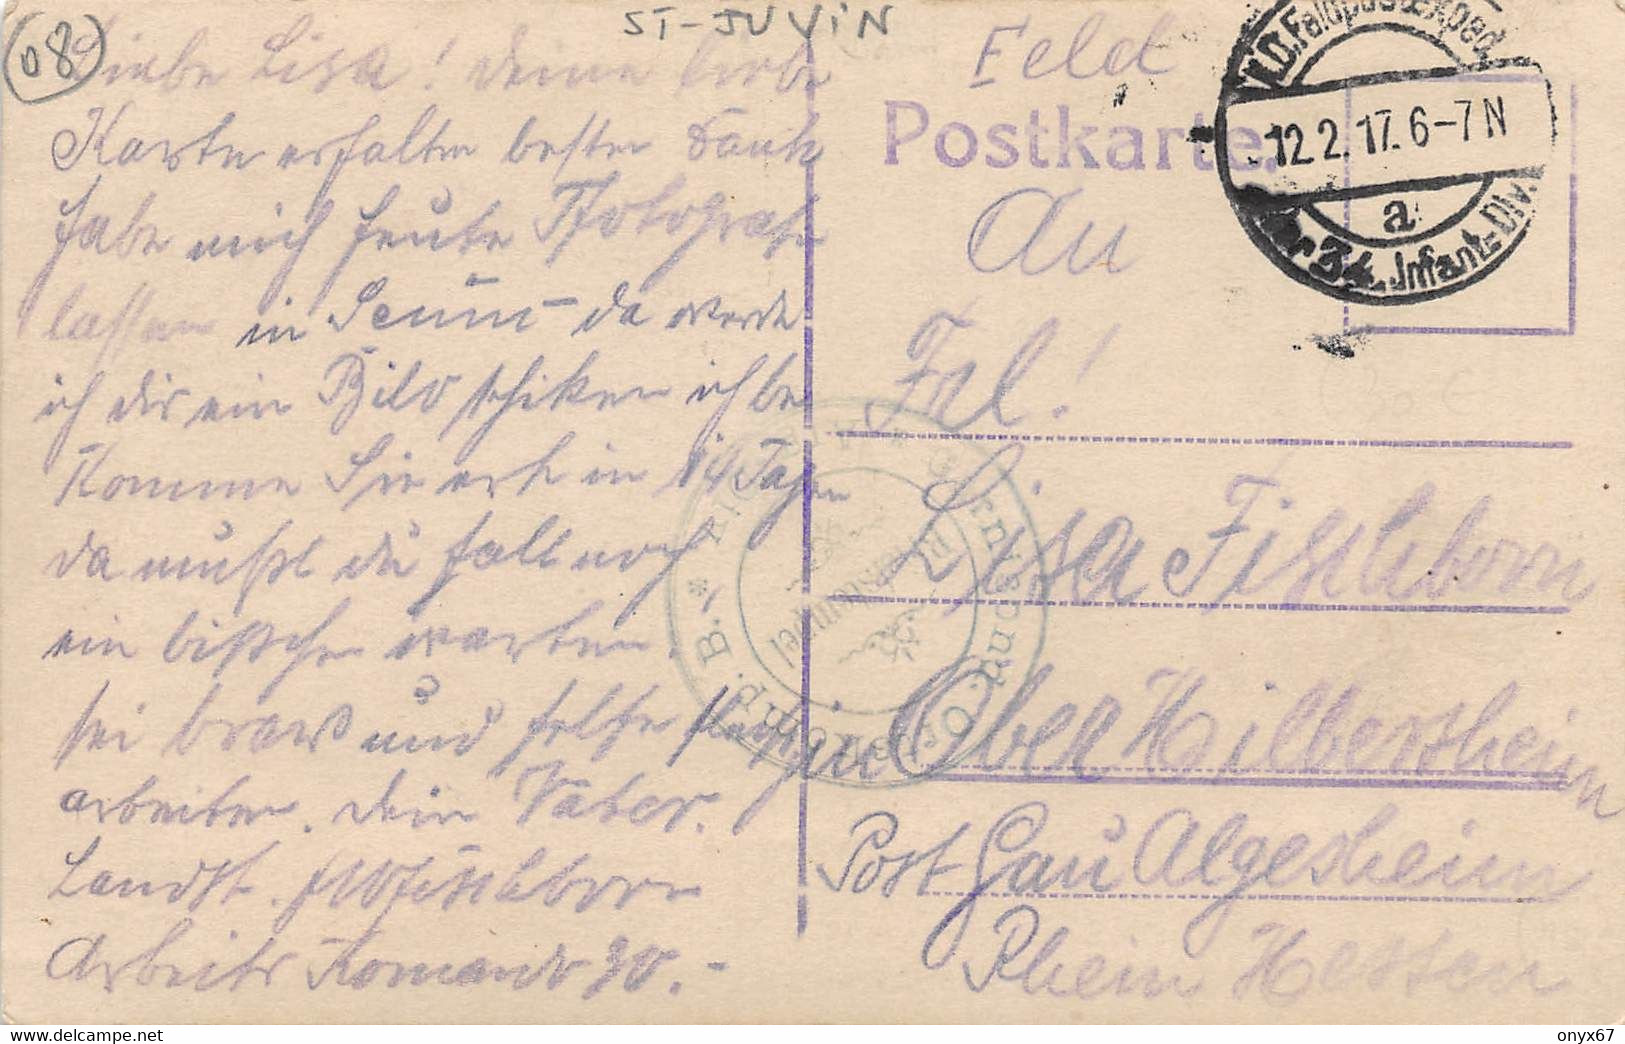 08
ST-JUVIN
Liebe Lisa! deine liebe
Karte erhalten besten Dank
habe mich heute Photograf
lassen in da werde
ich dir ein Bild schiken ich be
komme Sie erst in 14 Tagen
da mußt du halt noch
ein bißchen warten.
sei brav und helfe fleißig
arbeiten. dein Vater.
Landst. Fischborn
Arbeits Komando 30.-
Feld
Postkarte.
An
Frl!
Lisa Fischborn
Ober Hilbersheim
Post Gau Algesheim
Rhein Hessen
K.D. Feldpostexped.
12.2.17. 6-7 N
a
der 34. Infant.-Div.
delcampe.net
onyx67